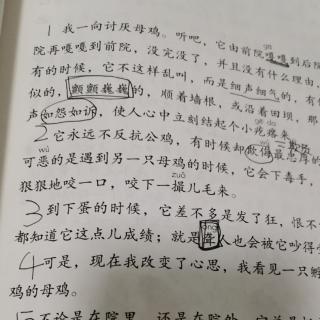 1 我一向讨厌母鸡。听吧，它由前院嘎嘎到后院
院再嘎嘎到前院，没完没了，并且没有什么理由，
有的时候，它不这样乱叫，而是细声细气的，有什
似的，颤颤巍巍的，顺着墙根，或沿着田坝，那
声如怨如诉，使人心中立刻结起个小疙瘩来
2 它永远不反抗公鸡，有时候却欺侮最忠厚的
wù
可恶的是遇到另一只母鸡的时候，它会下毒手，
zuǒ
狠狠地咬一口，咬下一撮儿毛来。
3 到下蛋的时候，它差不多是发了狂，恨不
都知道它这点儿成绩；就是聋人也会被它吵得
4 可是，现在我改变了心思，我看见一只孵
鸡的母鸡。
不论是在院里，还是在院外，它总是